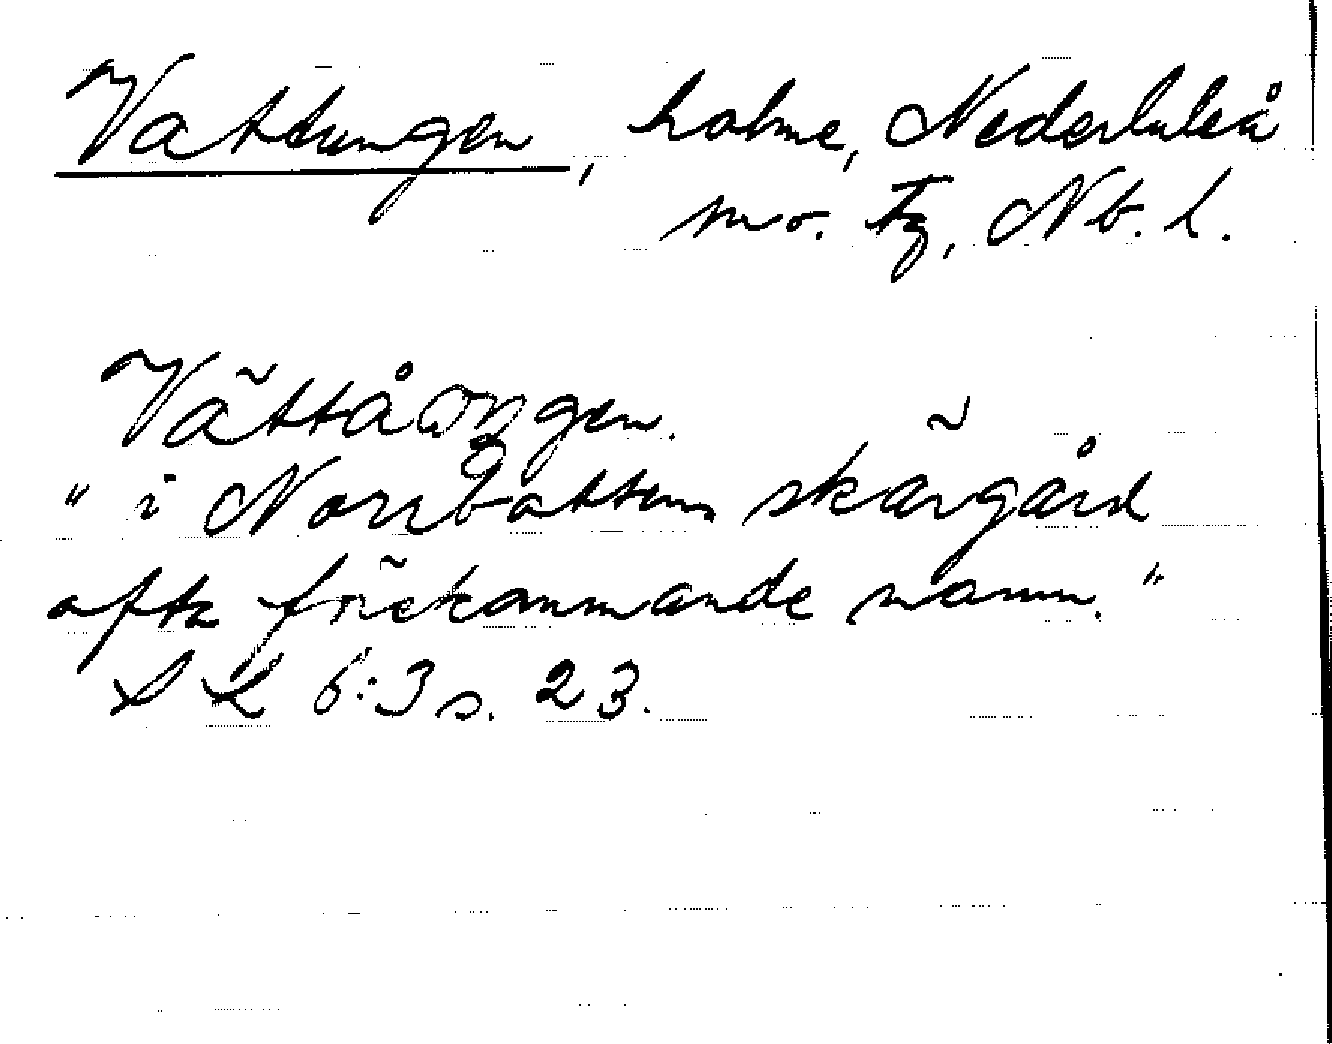 Vattungen, holme, Nederluleå
sn o. tg, Nb. l.
Vättåongen.
"i Norrbottens skärgård
ofta förekommande namn."
SL 6:3 s. 23.